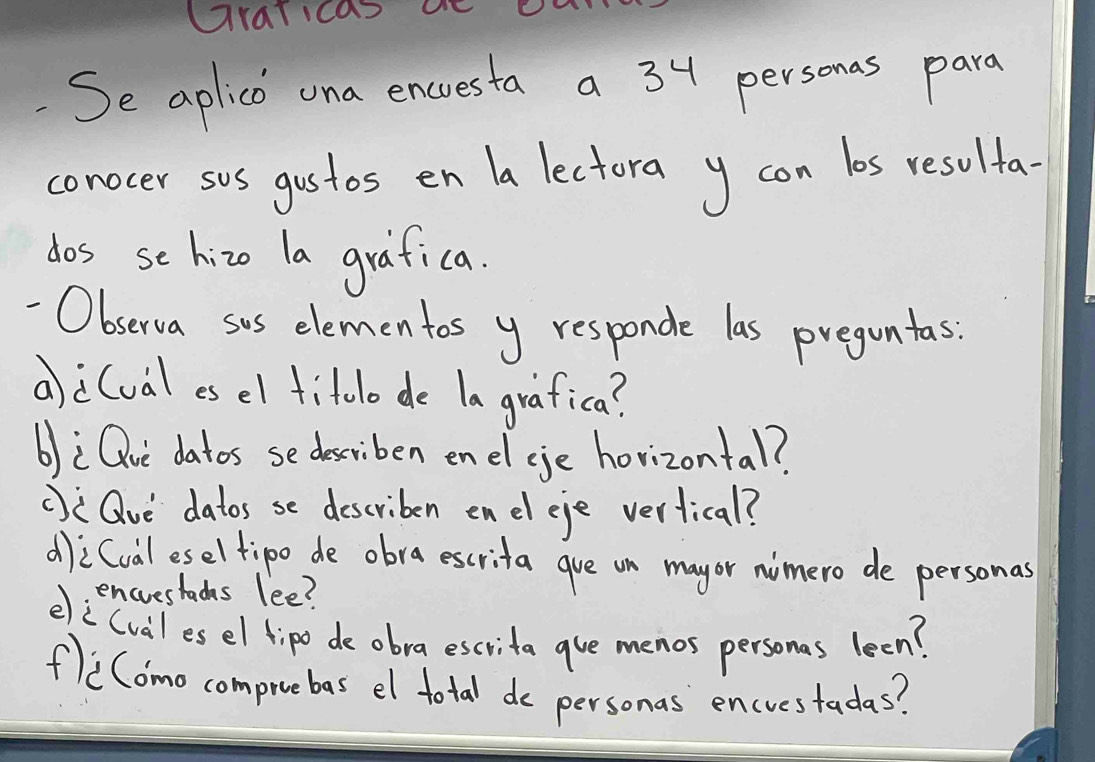 Gráficas de
- Se aplicó una encuesta a 34 personas para
conocer sus gustos en la lectura y con los resulta-
dos se hizo la gráfica.
- Observa sus elementos y responde las preguntas:
a) ¿Cuál es el título de la gráfica?
b) ¿Qué datos se describen en el eje horizontal?
c) ¿Qué datos se describen en el eje vertical?
d) ¿Cuál es el tipo de obra escrita que un mayor número de personas
encuestadas lee?
e) ¿Cuál es el tipo de obra escrita que menos personas leen?
f) ¿Cómo compruebas el total de personas encuestadas?